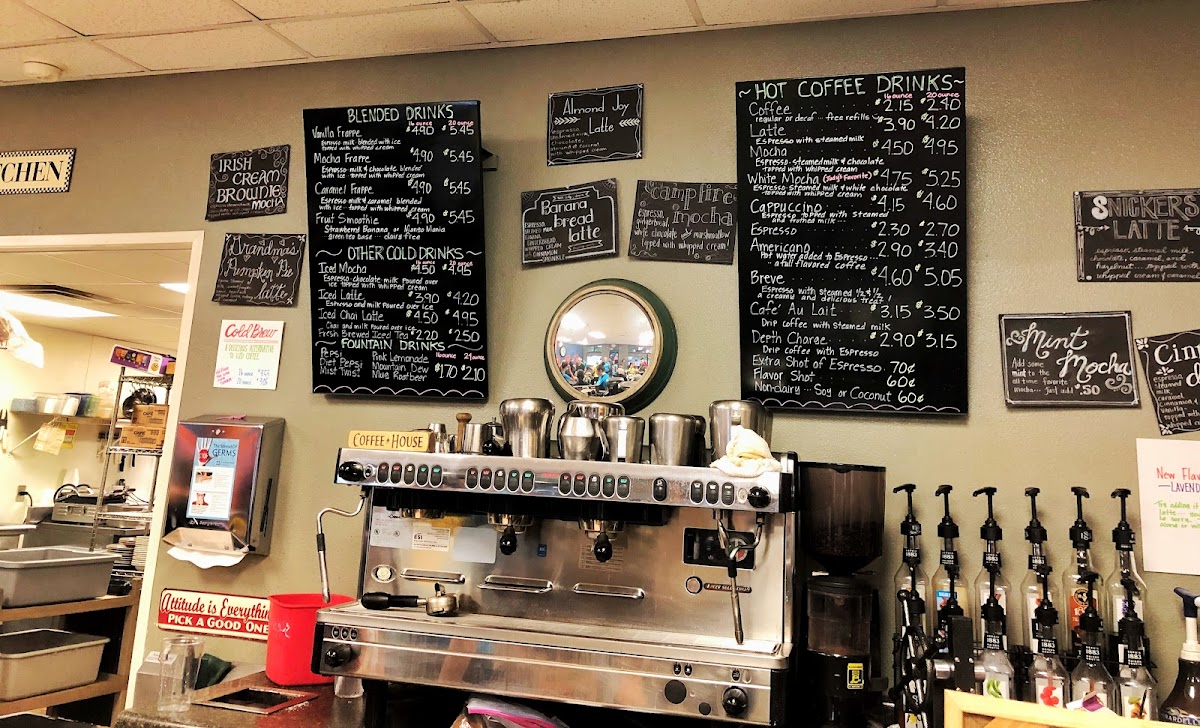 TCHEN
IRISH
CREAM
BROWNIE
MOCHA
Grandma's
Pumpkin Pie
Latte
Cold Brew
A DELICIOUS ALTERNATIVE
TO ICED COFFEE
16 ounce
20 ounce
GERMS
Attitude is Everything
PICK A GOOD ONE
BLENDED DRINKS
16 ounce 20 ounce
Vanilla Frappe $4.90 $5.45
Espresso milk blended with ice
topped with whipped cream
Mocha Frappe $4.90 $5.45
Espresso milk & chocolate blended
with ice topped with whipped cream
Caramel Frappe $4.90 $5.45
Espresso milk & caramel blended
with ice topped with whipped cream
Fruit Smoothie $4.90 $5.45
Strawberry Banana or Mango Mania
green tea base - dairy free
OTHER COLD DRINKS
16 ounce 20 ounce
Iced Mocha $4.50 $4.95
Espresso chocolate milk poured over
ice topped with whipped cream
Iced Latte $3.90 $4.20
Espresso and milk poured over ice
Iced Chai Latte $4.50 $4.95
Chai and milk poured over ice
Fresh Brewed Iced Tea $2.20 $2.50
FOUNTAIN DRINKS
16 ounce 24 ounce
Pepsi Pink Lemonade
Diet Pepsi Mountain Dew $1.70 $2.10
Mist Twist Mug Rootbeer
Almond Joy
Latte
espresso
steamed milk
chocolate,
almond & coconut
with whipped cream
Banana
bread
latte
WHIPPED CREAM
campfire
mocha
espresso,
gingerbread,
white chocolate & marshmallow
topped with whipped cream!
~ HOT COFFEE DRINKS ~
16 ounce 20 ounce
Coffee $2.15 $2.40
regular or decaf ... free refills
Latte $3.90 $4.20
Espresso with steamed milk
Mocha $4.50 $4.95
Espresso steamed milk & chocolate
topped with whipped cream
White Mocha (Judy's Favorite) $4.75 $5.25
Espresso steamed milk & white chocolate
topped with whipped cream
Cappuccino $4.15 $4.60
Espresso topped with steamed
and frothed milk
Espresso $2.30 $2.70
Americano $2.90 $3.40
Hot water added to Espresso...
a full flavored coffee
Breve $4.60 $5.05
Espresso with steamed 1/2 & 1/2
a creamy and delicious treat!
Cafe' Au Lait $3.15 $3.50
Drip coffee with steamed milk
Depth Charge $2.90 $3.15
Drip coffee with Espresso
Extra Shot of Espresso 70¢
Flavor Shot 60¢
Non-dairy ... Soy or Coconut 60¢
SNICKERS
LATTE
espresso, steamed milk,
chocolate, caramel, and
hazelnut... topped with
whipped cream & caramel
Mint
Mocha
Add some
mint to the
all time favorite
mocha... Just add $.50
Cinn
espresso
caramel
Cinnamon
Vanilla
New Flav
-LAVEND
COFFEE HOUSE
1883
1883
1883
1883